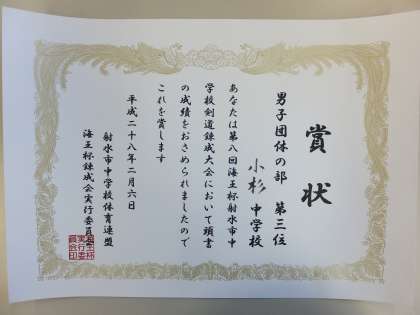 賞状
男子団体の部 第三位
小杉 中学校
あなたは第八回海王杯射水市中
学校剣道錬成大会において頭書
の成績をおさめられましたので
これを賞します
平成二十八年二月六日
射水市中学校体育連盟
海王杯錬成会実行委員会